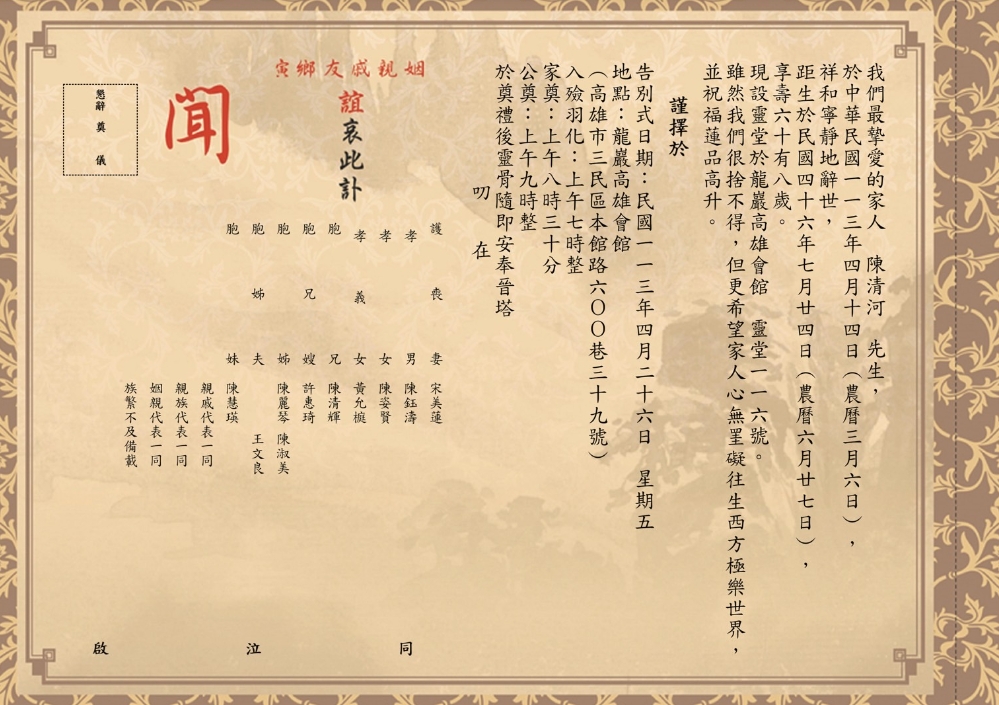 我們最摯愛的家人　陳清河　先生，
於中華民國一一三年四月十四日（農曆三月六日），
祥和寧靜地辭世，
距生於民國四十六年七月廿四日（農曆六月廿七日），
享壽六十有八歲。
現設靈堂於龍巖高雄會館　靈堂一一六號。
雖然我們很捨不得，但更希望家人心無罣礙往生西方極樂世界，
並祝福蓮品高升。
謹擇於
告別式日期：民國一一三年四月二十六日　星期五
地點：龍巖高雄會館
（高雄市三民區本館路六〇〇巷三十九號）
入殮羽化：上午七時整
家奠：上午八時三十分
公奠：上午九時整
於奠禮後靈骨隨即安奉晉塔
叨　在
姻親戚友鄉寅
誼哀此訃
聞
懇辭　奠　儀
護喪妻　宋美蓮
孝男　陳鈺濤
孝女　陳姿賢
孝義女　黃允榳
胞兄　陳清輝
胞兄嫂　許惠琦
胞姊　陳麗琴　陳淑美
胞姊夫　王文良
胞妹　陳慧瑛
親戚代表一同
親族代表一同
姻親代表一同
族繁不及備載
同　泣　啟